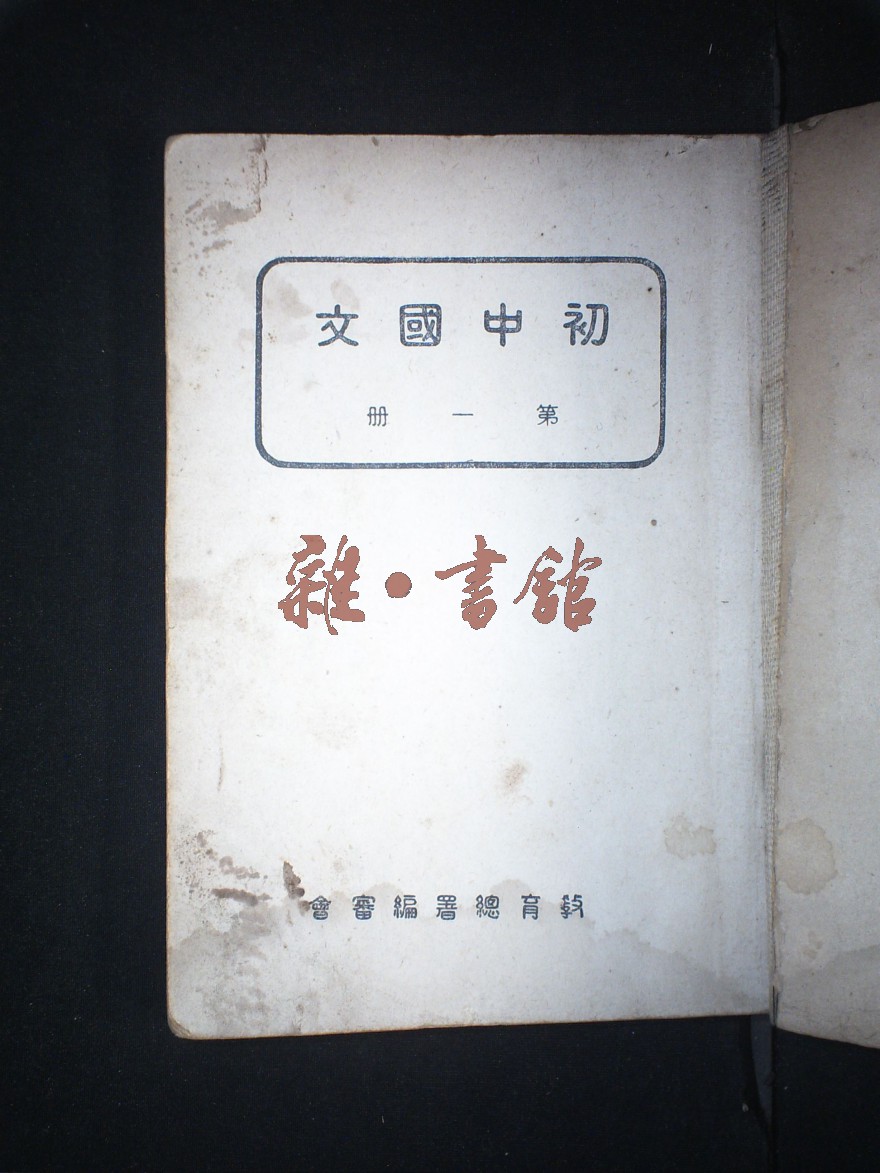 初中國文
第一册
雜·書館
教育總署編審會